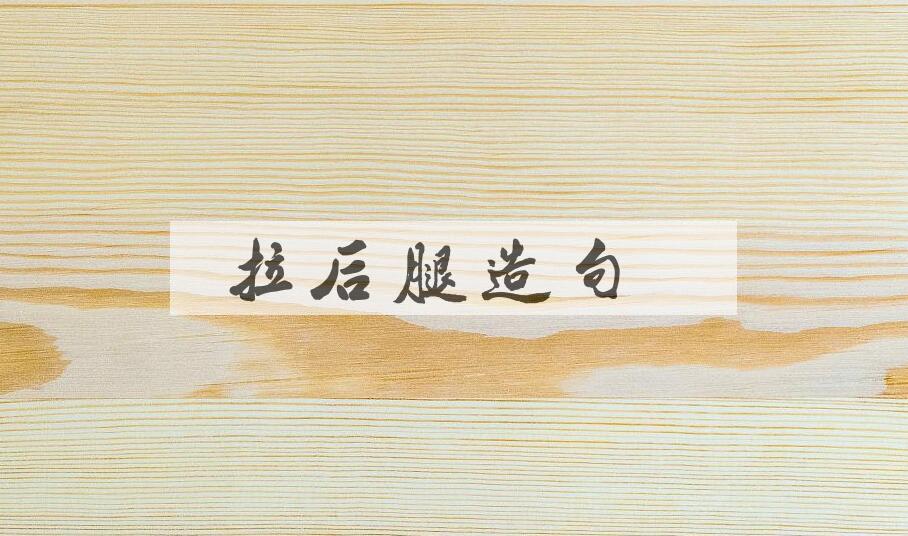 拉后腿造句